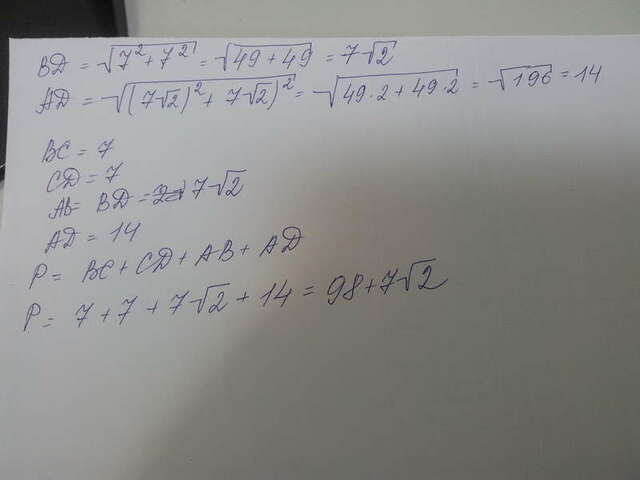 BD = √(7² + 7²) = √(49 + 49) = 7√2
AD = √((7√2)² + 7√2)² = √(49·2 + 49·2) = √196 = 14
BC = 7
CD = 7
AB = BD = 7√2
AD = 14
P = BC + CD + AB + AD
P = 7 + 7 + 7√2 + 14 = 98 + 7√2